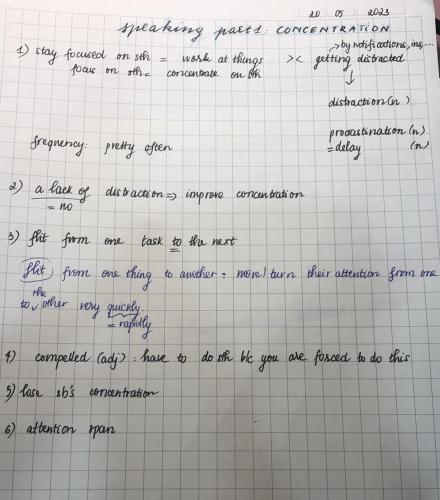 20 05 2023
speaking part 1: CONCENTRATION
1) stay focused on sth = work at things >< getting distracted
→ by notifications, ins, ...
focus on sth = concentrate on sth
↓
distraction (n)
procrastination (n)
= delay (n)
frequency: pretty often
2) a lack of distraction => improve concentration
= no
3) flit from one task to the next
flit from one thing to another = move / turn their attention from one
to the other very quickly
= rapidly
4) compelled (adj) : have to do sth b/c you are forced to do this
5) lose sb's concentration
6) attention span